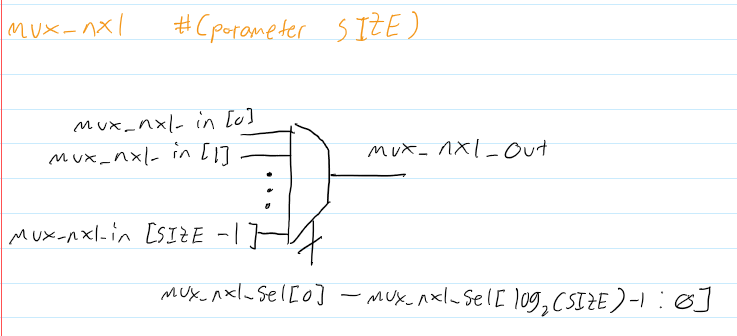 mux_nx1 #(parameter SIZE)
mux_nx1_in [0]
mux_nx1_in [1]
mux_nx1_out
mux_nx1_in [SIZE -1]
mux_nx1_sel[0] — mux_nx1_sel[log₂(SIZE)-1:0]